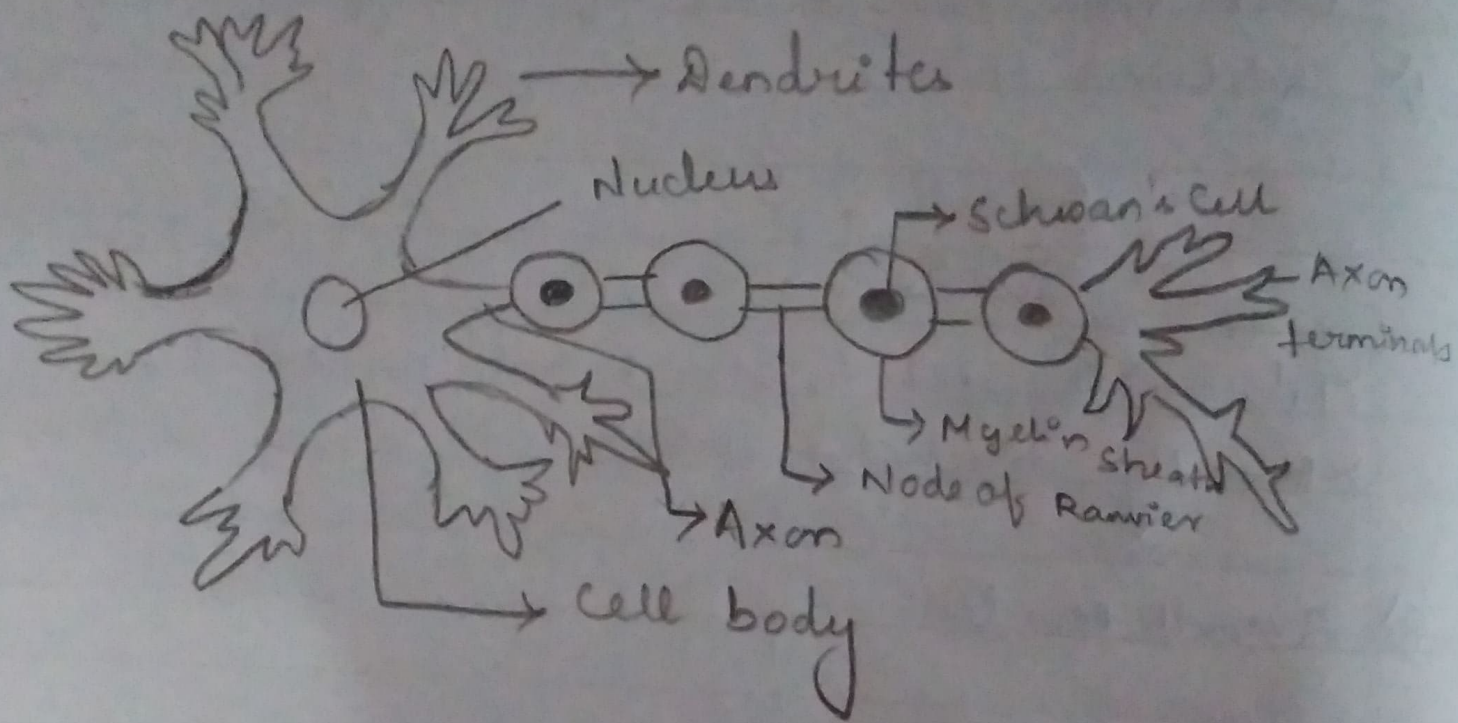 Dendrites
Nucleus
Schwan's Cell
Axon
terminals
Myelin
Sheath
Node of Ranvier
Axon
Cell body